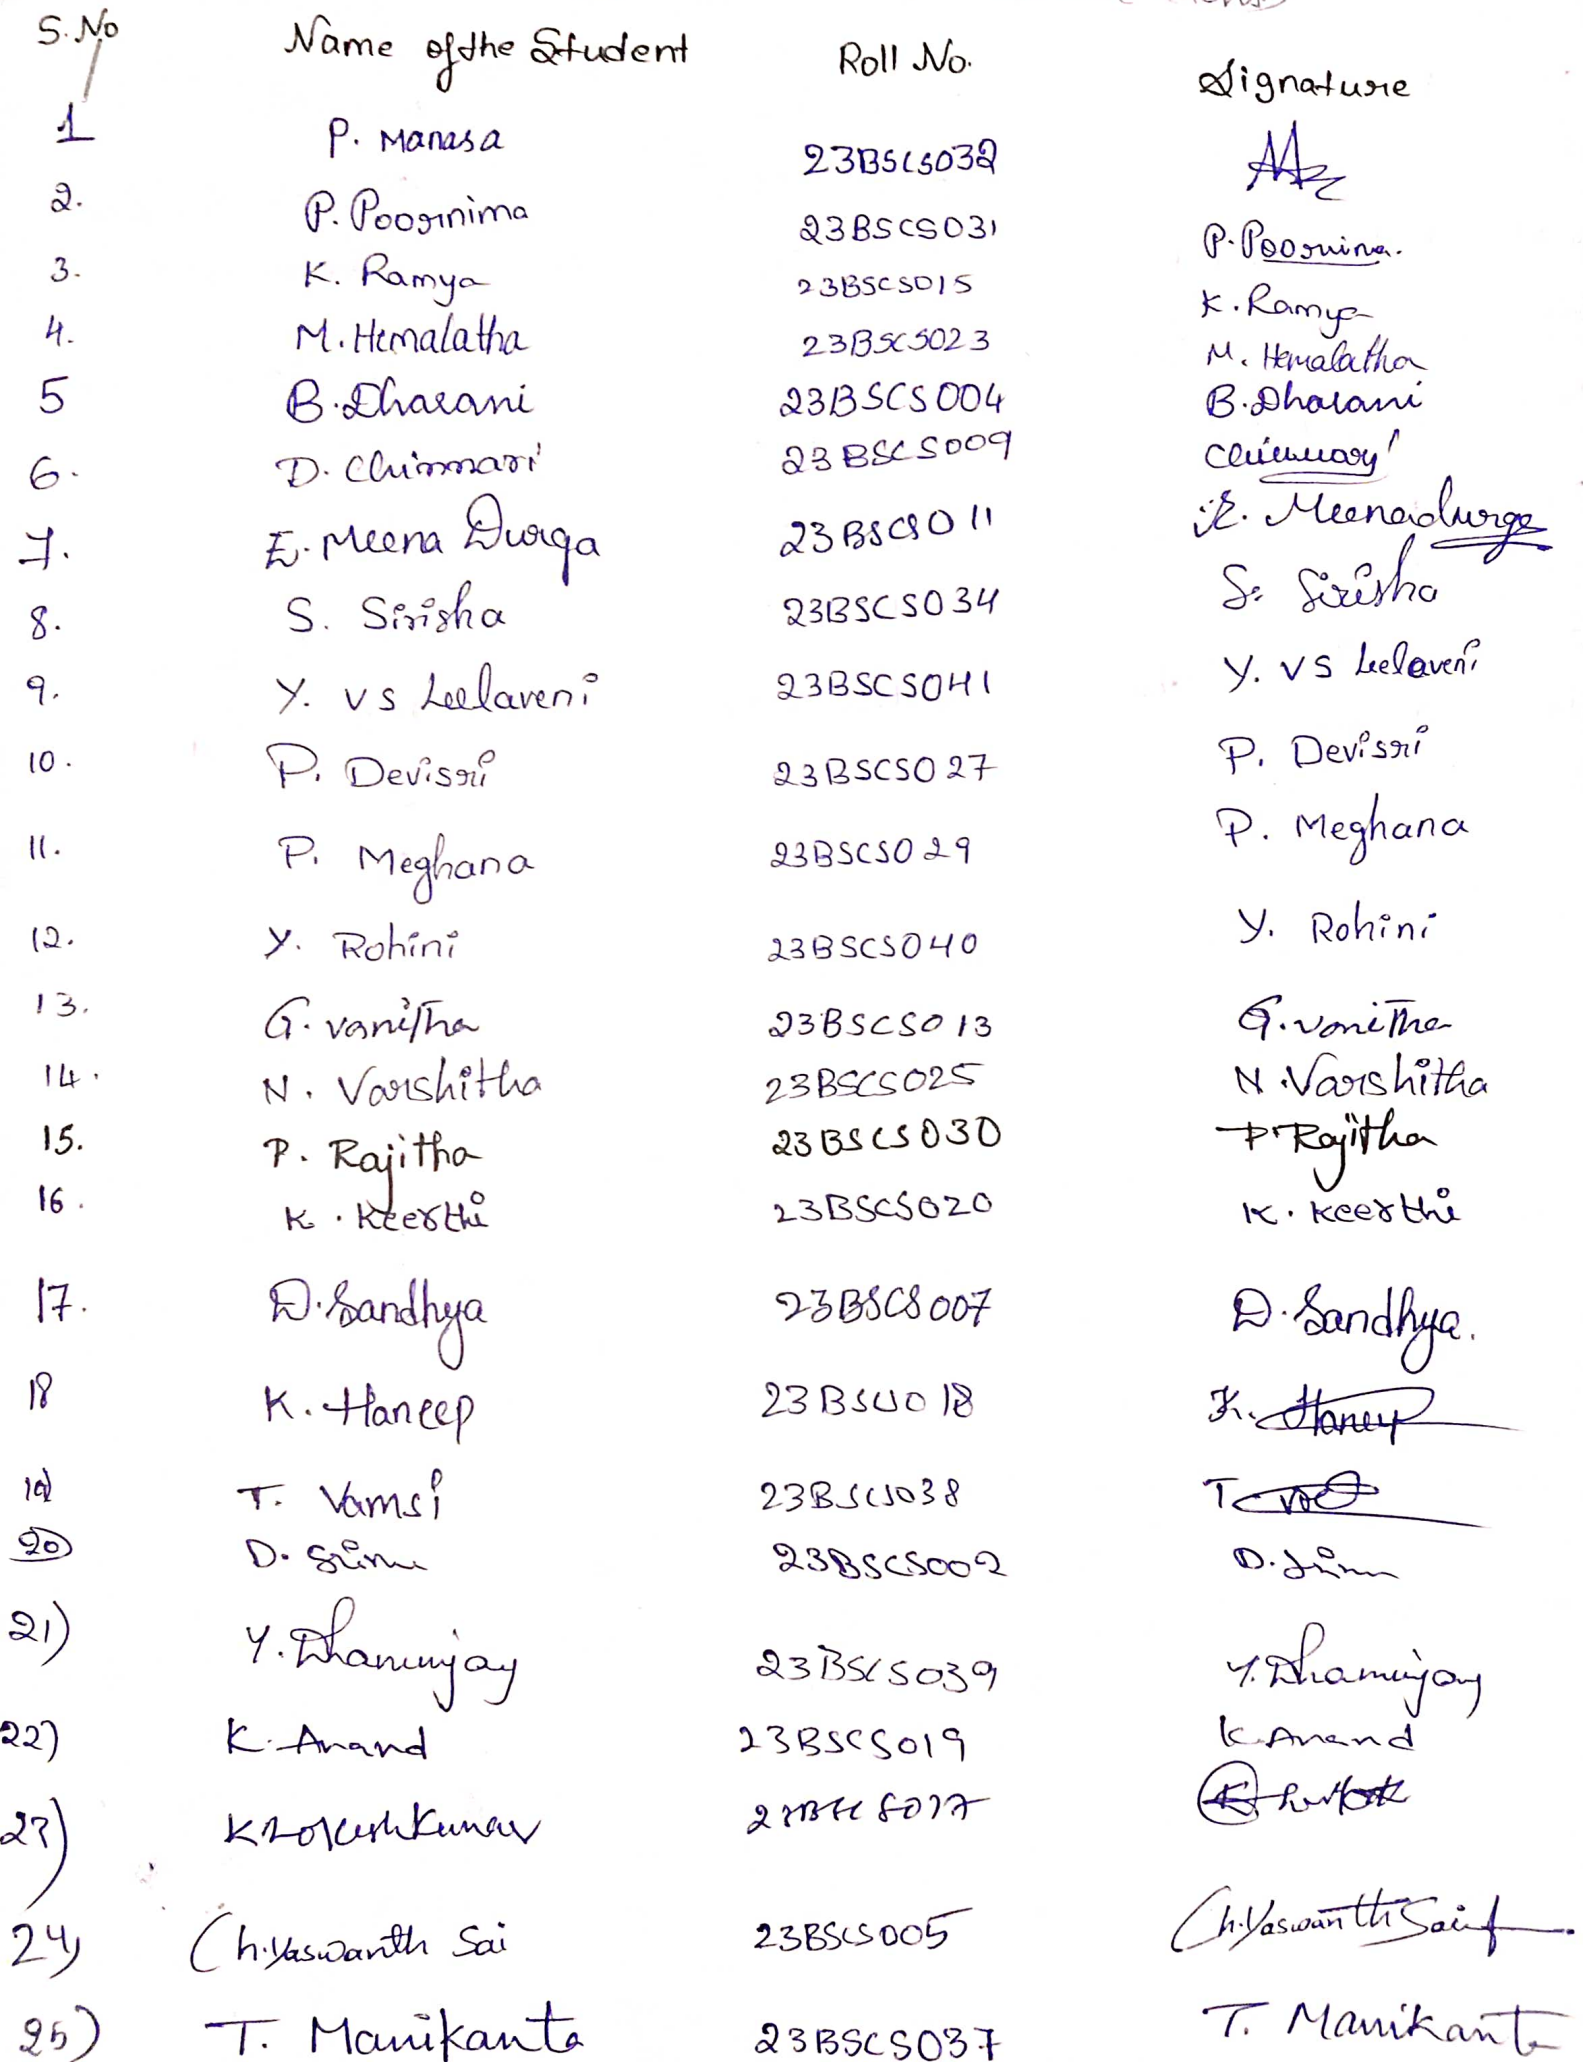 S.No Name of the Student Roll No. Signature
1 P. Manasa 23BSCS032
2. P. Poornima 23BSCS031 P. Poornima.
3. K. Ramya 23BSCS015 K. Ramya
4. M. Hemalatha 23BSCS023 M. Hemalatha
5 B. Dharani 23BSCS004 B. Dharani
6. D. Chinnari 23BSCS009
7. E. Meena Durga 23BSCS011 E. Meenadurga
8. S. Sirisha 23BSCS034 S. Sirisha
9. Y. VS Leelaveni 23BSCS041 Y. VS Leelaveni
10. P. Devisri 23BSCS027 P. Devisri
11. P. Meghana 23BSCS029 P. Meghana
12. Y. Rohini 23BSCS040 Y. Rohini
13. G. vanitha 23BSCS013 G. vanitha
14. N. Varshitha 23BSCS025 N. Varshitha
15. P. Rajitha 23BSCS030 P. Rajitha
16. K. Keerthi 23BSCS020 K. Keerthi
17. D. Sandhya 23BSCS007 D. Sandhya.
18 K. Haneep 23BSCS018 K. Haneep
19) T. Vamsi 23BSCS038 T
20) D. Srinu 23BSCS002 D. Srinu
21) Y. Dhanunjay 23BSCS039 Y. Dhanunjay
22) K. Anand 23BSCS019 K Anand
23) K Lokesh Kumar
24) Ch. Yaswanth Sai 23BSCS005 Ch. Yaswanth Sai
25) T. Manikanta 23BSCS037 T. Manikanta